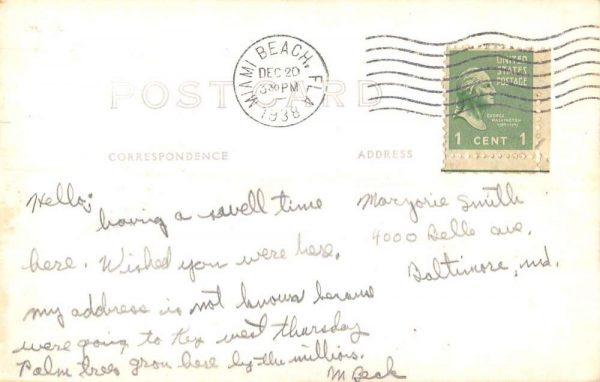 MIAMI BEACH, FLA.
DEC 20
3 30 PM
1938
UNITED
STATES
POSTAGE
GEORGE
WASHINGTON
1 CENT 1
POST CARD
CORRESPONDENCE
ADDRESS
Hello:
having a swell time
here. Wished you were here.
my address is not known because
were going to Key west thursday
Palm trees grow here by the millions.
M Beck
Marjorie Smith
4000 Belle ave.
Baltimore, Md.